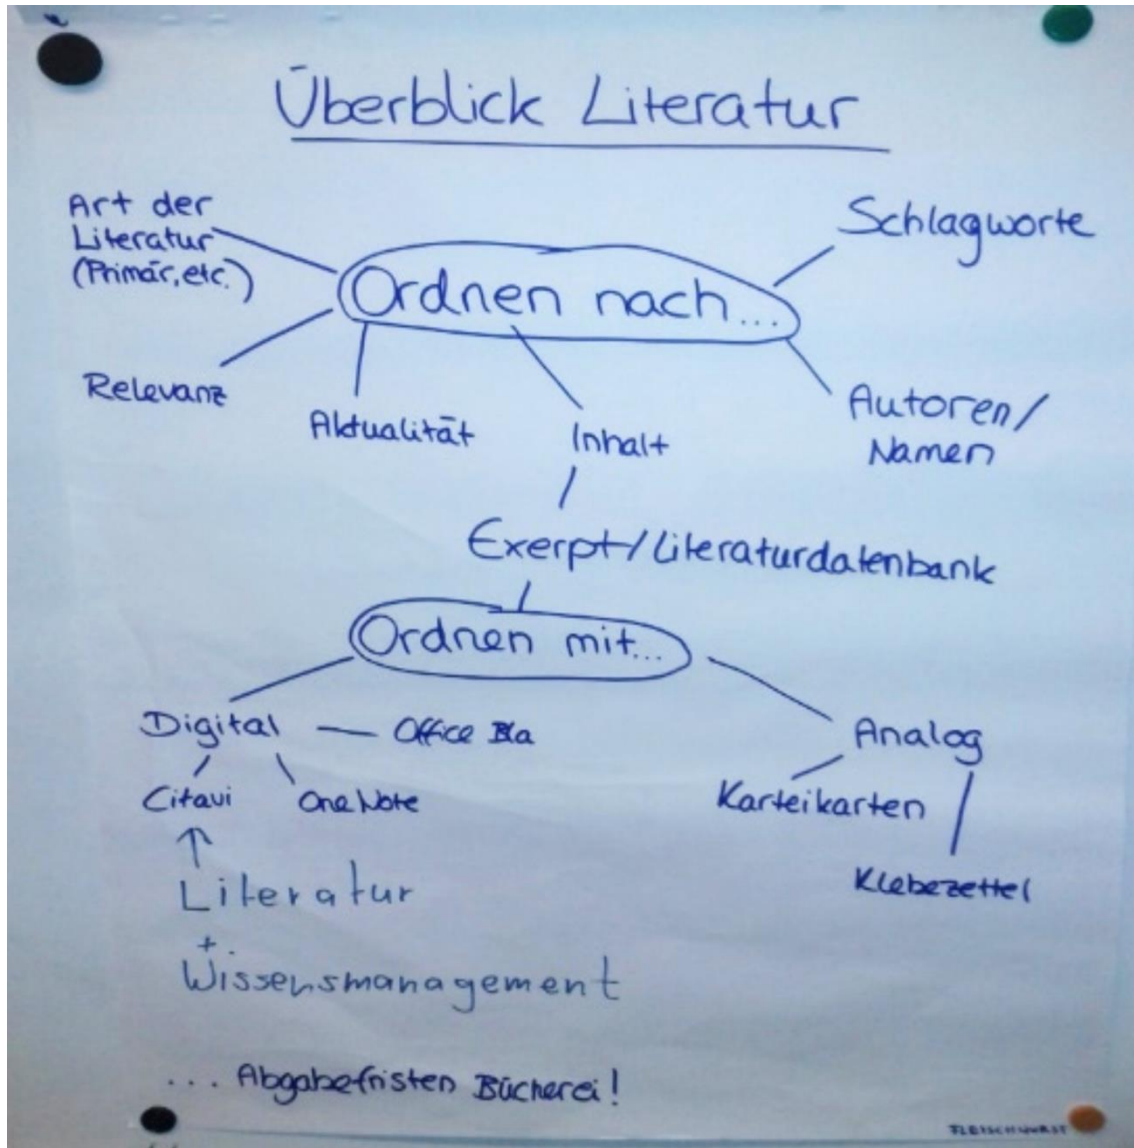 Überblick Literatur
Art der
Literatur
(Primär, etc.)
Schlagworte
Ordnen nach...
Relevanz
Aktualität
Inhalt
Autoren/
Namen
Exerpt/Literaturdatenbank
Ordnen mit...
Digital
Office
Analog
Citavi
OneNote
Karteikarten
Klebezettel
Literatur
+
Wissensmanagement
... Abgabefristen Bücherei!
FLEISCHWURST